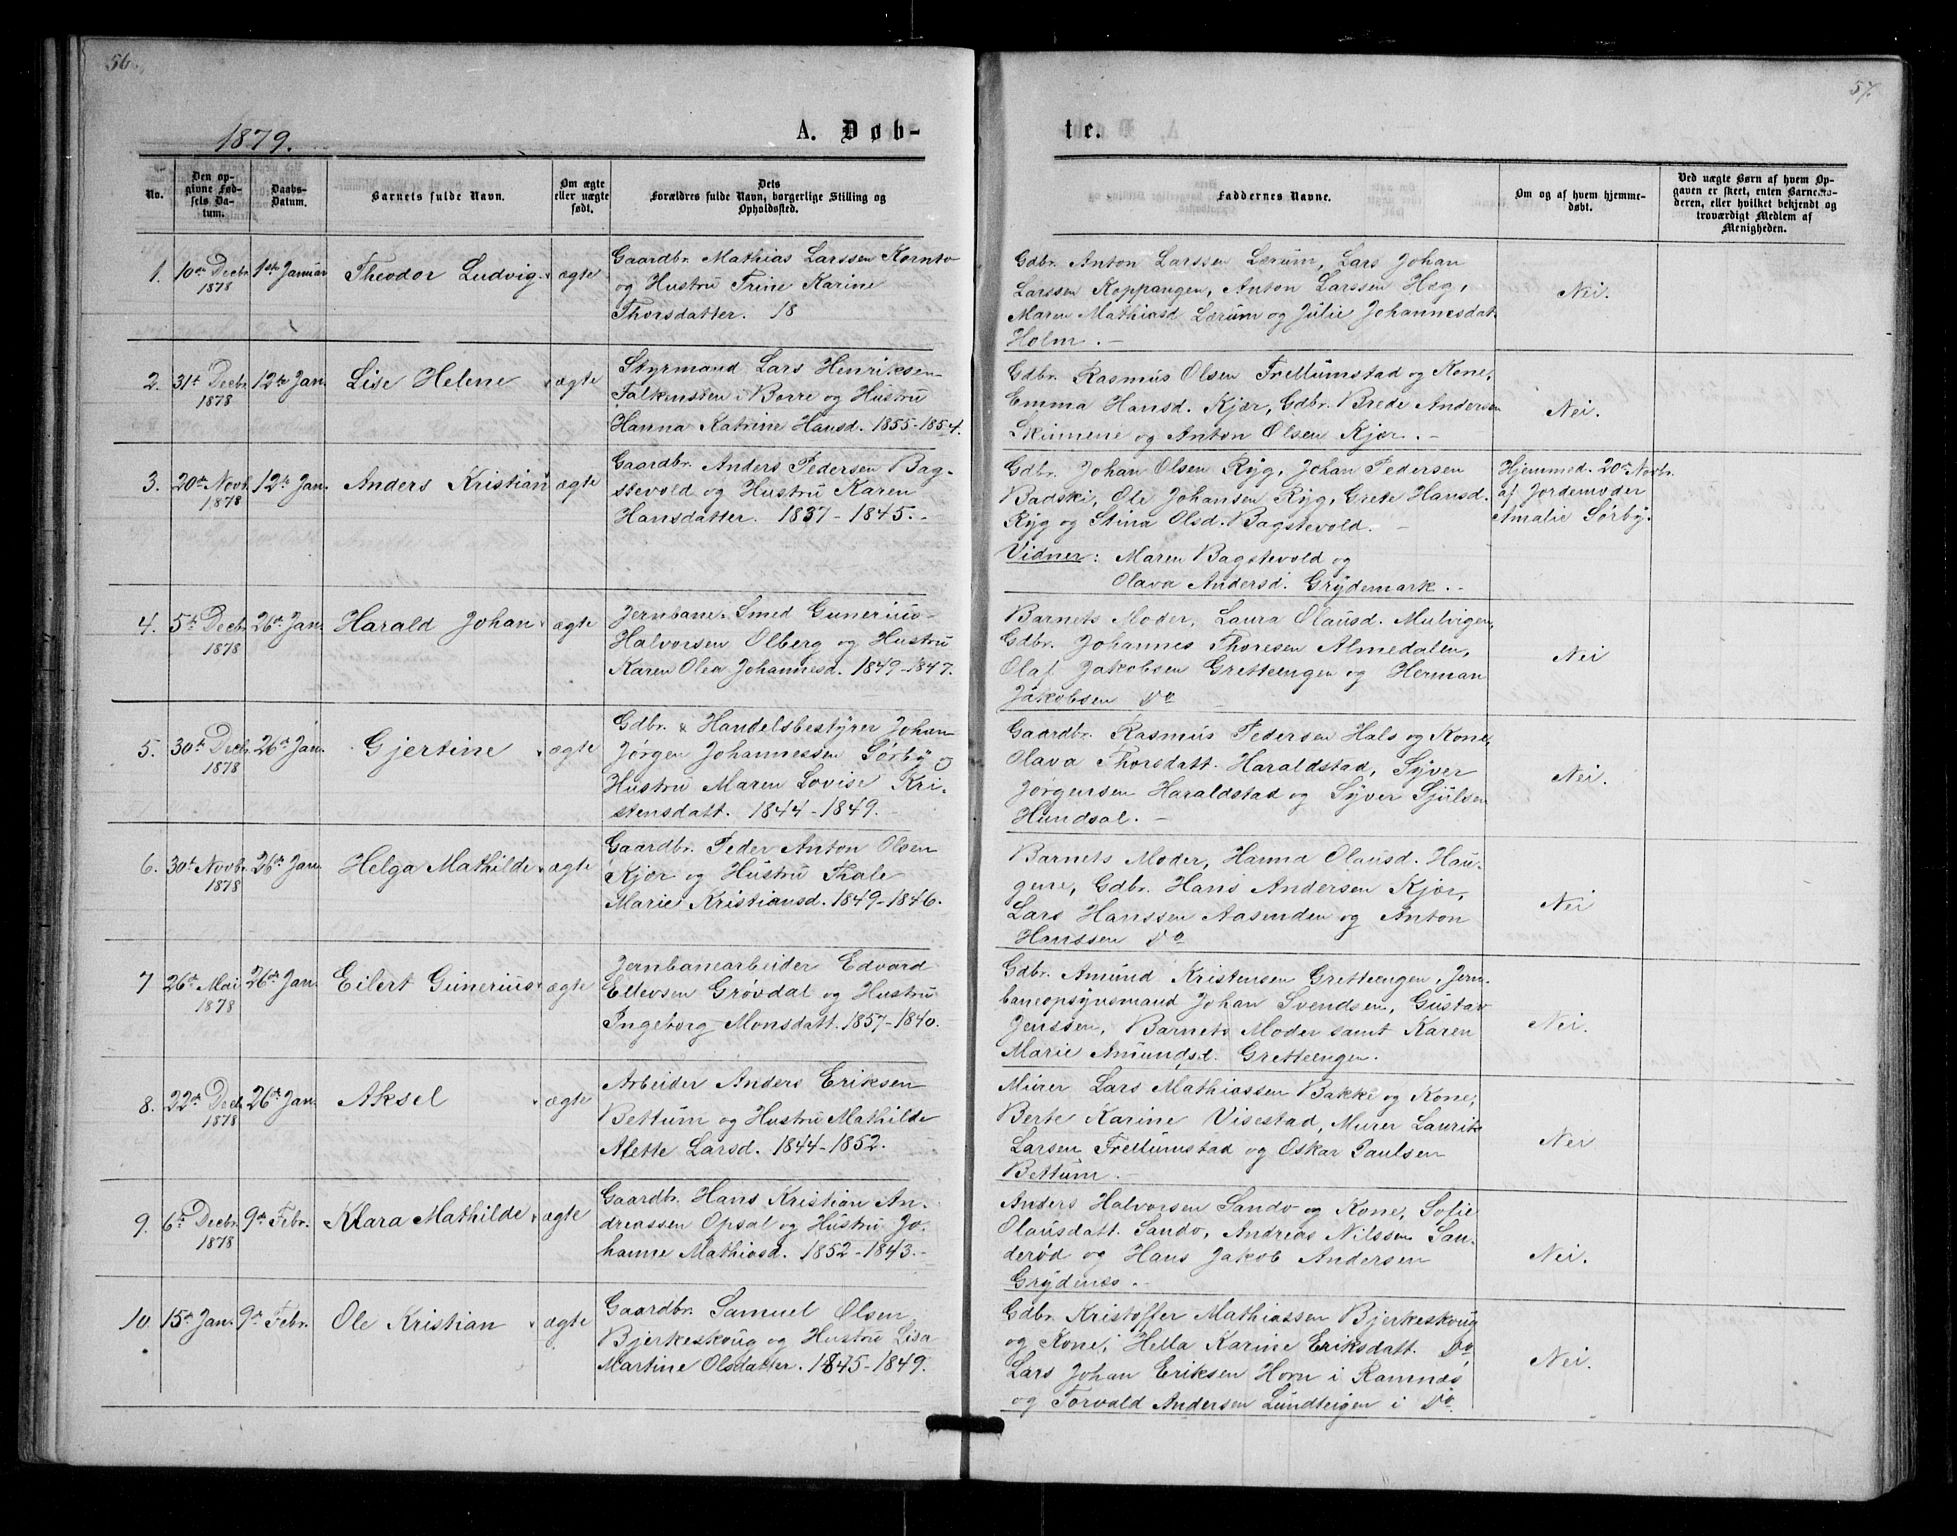 56.
1879.
A. Døb-
No.
Den op-
givne Fød-
sels Da-
tum.
Daabs-
Datum.
Barnets fulde Navn.
Om ægte
eller uægte
født.
Dets
Forældres fulde Navn, borgerlige Stilling og
Opholdssted.
1. 10de Decbr. 1878 1ste Januar Theodor Ludvig ægte
Gaardbr. Mathias Larssen Kornto
og Hustru Trine Karine
Thorsdatter. 18
2. 31te Decbr. 1878 12te Jan. Lise Helene ægte
Styrmand Lars Henriksen
Falkensten i Borre og Hustru
Hanna Katrine Hansd. 1855-1854.
3. 20de Novbr. 1878 12te Jan. Anders Kristian ægte
Gaardbr. Anders Pedersen Bag-
stevold og Hustru Karen
Hansdatter. 1837-1845.
4. 5te Decbr. 1878 26de Jan. Harald Johan ægte
Jernbane-Smed Gunerius
Halvorsen Olberg og Hustru
Karen Olea Johannesd. 1849-1847.
5. 30te Decbr. 1878 26de Jan. Gjertine ægte
Gdbr. & Handelsbestyrer Johan
Jørgen Johannessen Sørby og
Hustru Maren Lovise Kri-
stensdatt. 1844-1849.
6. 30te Novbr. 1878 26de Jan. Helga Mathilde ægte
Gaardbr. Peder Anton Olsen
Kjær og Hustru Thale
Marie Kristiansd. 1849-1846.
7 26de Mai 1878 26de Jan. Eilert Gunerius ægte
Jernbanearbeider Edvard
Ellevsen Grøvdal og Hustru
Ingeborg Monsdatt. 1857-1840.
8. 22de Decbr. 1878 26de Jan. Aksel ægte
Arbeider Anders Eriksen
Bettum og Hustru Mathilde
Alette Larsd. 1844-1852.
9. 6te Decbr. 1878 9de Febr. Klara Mathilde ægte
Gaardbr. Hans Kristian An-
dreassen Opsal og Hustru Jo-
hanne Mathiasd. 1852-1843.
10. 15de Jan. 9de Febr. Ole Kristian ægte
Gaardbr. Samuel Olsen
Bjerkeskoug og Hustru Lisa
Martine Olsdatter. 1845-1849.
57.
te.
Faddernes Navne.
Om og af hvem hjemme-
døbt.
Ved uægte Børn af hvem Op-
gaven er skeet, enten Barnemo-
deren, eller hvilket bekjendt og
troværdigt Medlem af
Menigheden.
Gdbr. Anton Larssen Lerum, Lars Johan
Larssen Koppangen, Anton Larssen Høg,
Maren Mathiasd Lærum og Julie Johannesdat
Holm.
Nei.
Gdbr. Rasmus Olsen Frellumstad og Kone,
Emma Hansd. Kjær, Gdbr. Brede Andersen
Skinnene og Anton Olsen Kjær.
Nei.
Gdbr. Johan Olsen Ryg, Johan Pedersen
Badski, Ole Johansen Ryg, Grete Hansd.
Ryg og Stina Olsd. Bagstevold.
Vidner: Maren Bagstevold og
Olava Andersd. Grydemark.
Hjemmed. 20de Novbr.
af Jordemoder
Amalie Sørby.
Barnets Moder, Laura Olausd. Mulvigen,
Gdbr. Johannes Thoresen Almedalen,
Olaf Jakobsen Gretteengen og Herman
Jakobsen Do
Nei
Gaardbr. Rasmus Pedersen Hals og Kone,
Olava Thorsdatt. Haraldstad, Syver
Jørgensen Haraldstad og Syver Sjulsen
Hundsal.
Nei.
Barnets Moder, Hanna Olausd. Hau-
gene, Gdbr. Hans Andersen Kjær,
Lars Hanssen Aasenden og Anton
Hanssen Do
Nei
Gdbr. Amund Kristensen Gretteengen, Jern-
baneopsynsmand Johan Svendsen, Gustav
Jenssen, Barnets Moder samt Karen
Marie Amundsd. Gretteengen.
Nei.
Murer Lars Mathiassen Bakke og Kone,
Berte Karine Visestad, Murer Laurits
Larsen Frellumstad og Oskar Paulsen
Bettum.
Nei
Anders Halvorsen Sando og Kone, Sofie
Olausdatt. Sando, Andreas Nilssen San-
derød og Hans Jakob Andersen
Grydenes.
Nei.
Gdbr. Kristoffer Mathiassen Bjerkeskoug
og Kone, Hella Karine Eriksdatt. Do,
Lars Johan Eriksen Horn i Ramnæs
og Torvald Andersen Lundteigen i Do.
Nei.